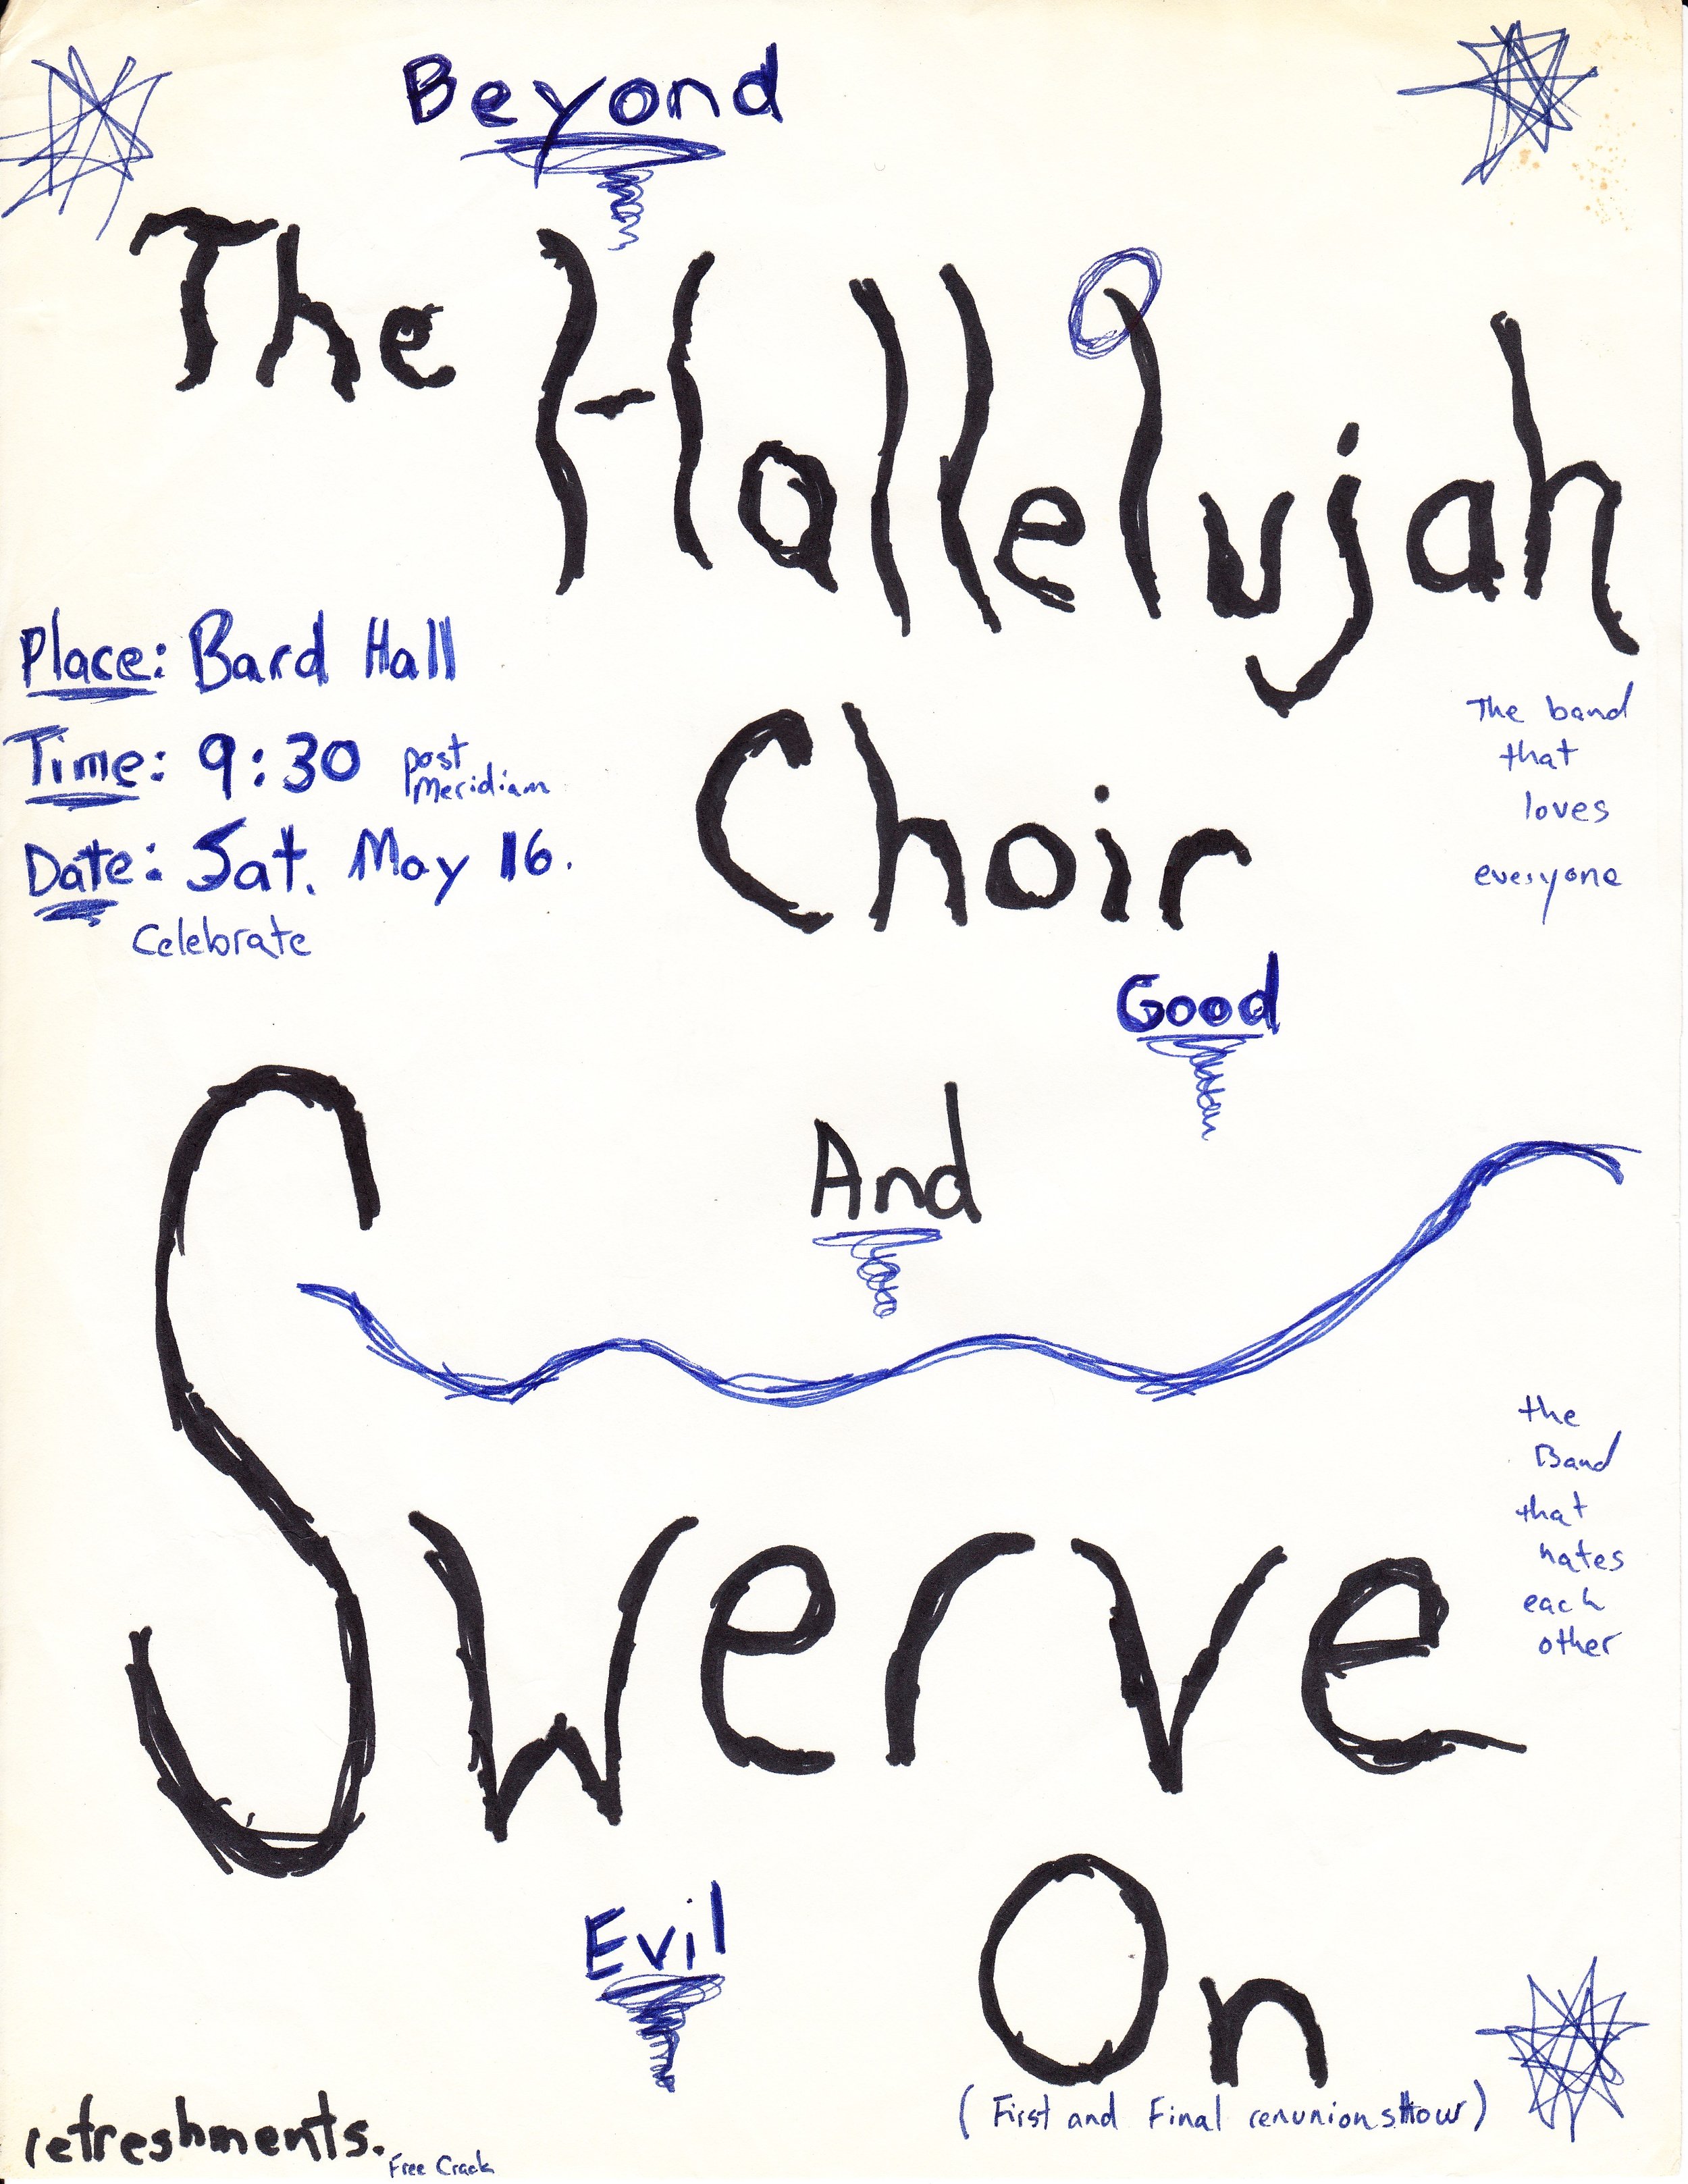 Beyond
The Hallelujah
Place: Bard Hall
Time: 9:30 post Meridiam
Date: Sat. May 16.
Celebrate
Choir
The band
that
loves
everyone
Good
And
Swerve
the
Band
that
hates
each
other
Evil
On
(First and Final renunion sHow)
refreshments.
Free Crack